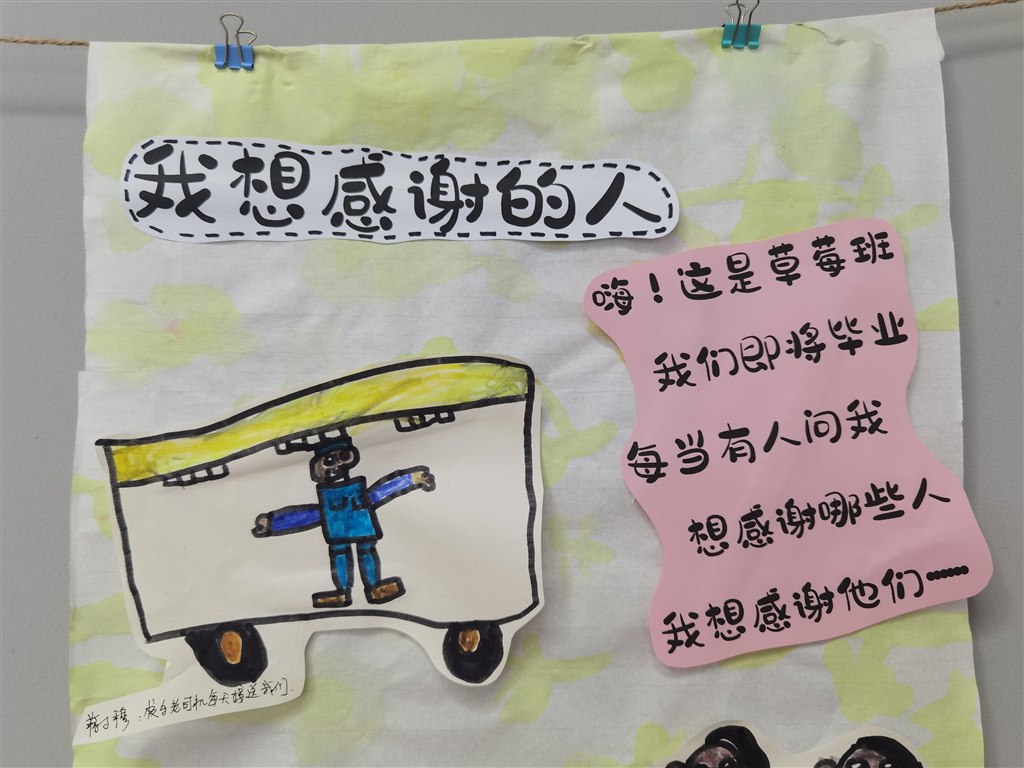 我想感谢的人
嗨！这是草莓班
我们即将毕业
每当有人问我
想感谢哪些人
我想感谢他们……
:校车老司机每天接送我们.